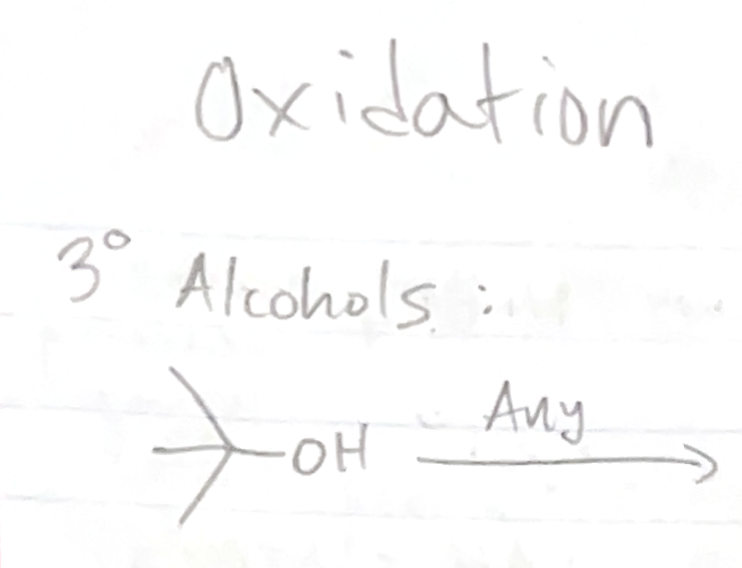 Oxidation
3° Alcohols:
Any
OH